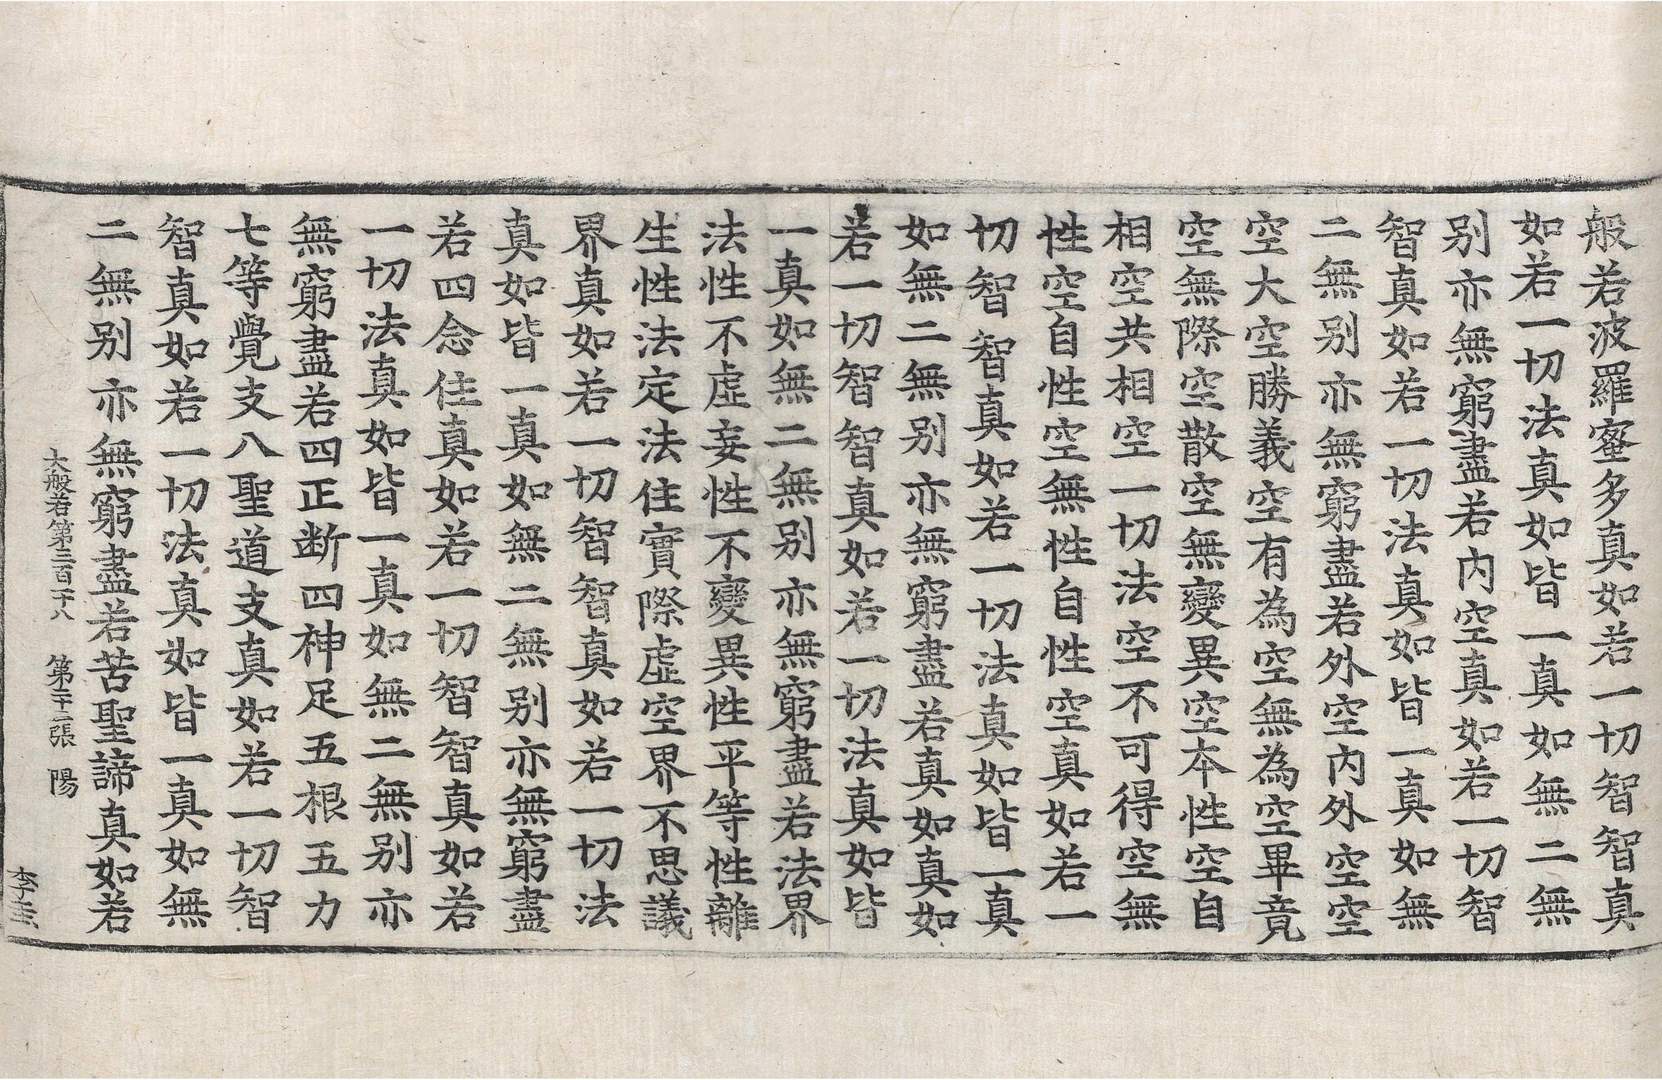 般若波羅蜜多真如若一切智智真
如若一切法真如皆一真如無二無
別亦無窮盡若内空真如若一切智
智真如若一切法真如皆一真如無
二無別亦無窮盡若外空内外空空
空大空勝義空有為空無為空畢竟
空無際空散空無變異空本性空自
相空共相空一切法空不可得空無
性空自性空無性自性空真如若一
切智智真如若一切法真如皆一真
如無二無別亦無窮盡若真如真如
若一切智智真如若一切法真如皆
一真如無二無別亦無窮盡若法界
法性不虛妄性不變異性平等性離
生性法定法住實際虛空界不思議
界真如若一切智智真如若一切法
真如皆一真如無二無別亦無窮盡
若四念住真如若一切智智真如若
一切法真如皆一真如無二無別亦
無窮盡若四正断四神足五根五力
七等覺支八聖道支真如若一切智
智真如若一切法真如皆一真如無
二無別亦無窮盡若苦聖諦真如若
大般若第三百十八 第二十二張 陽
李圭